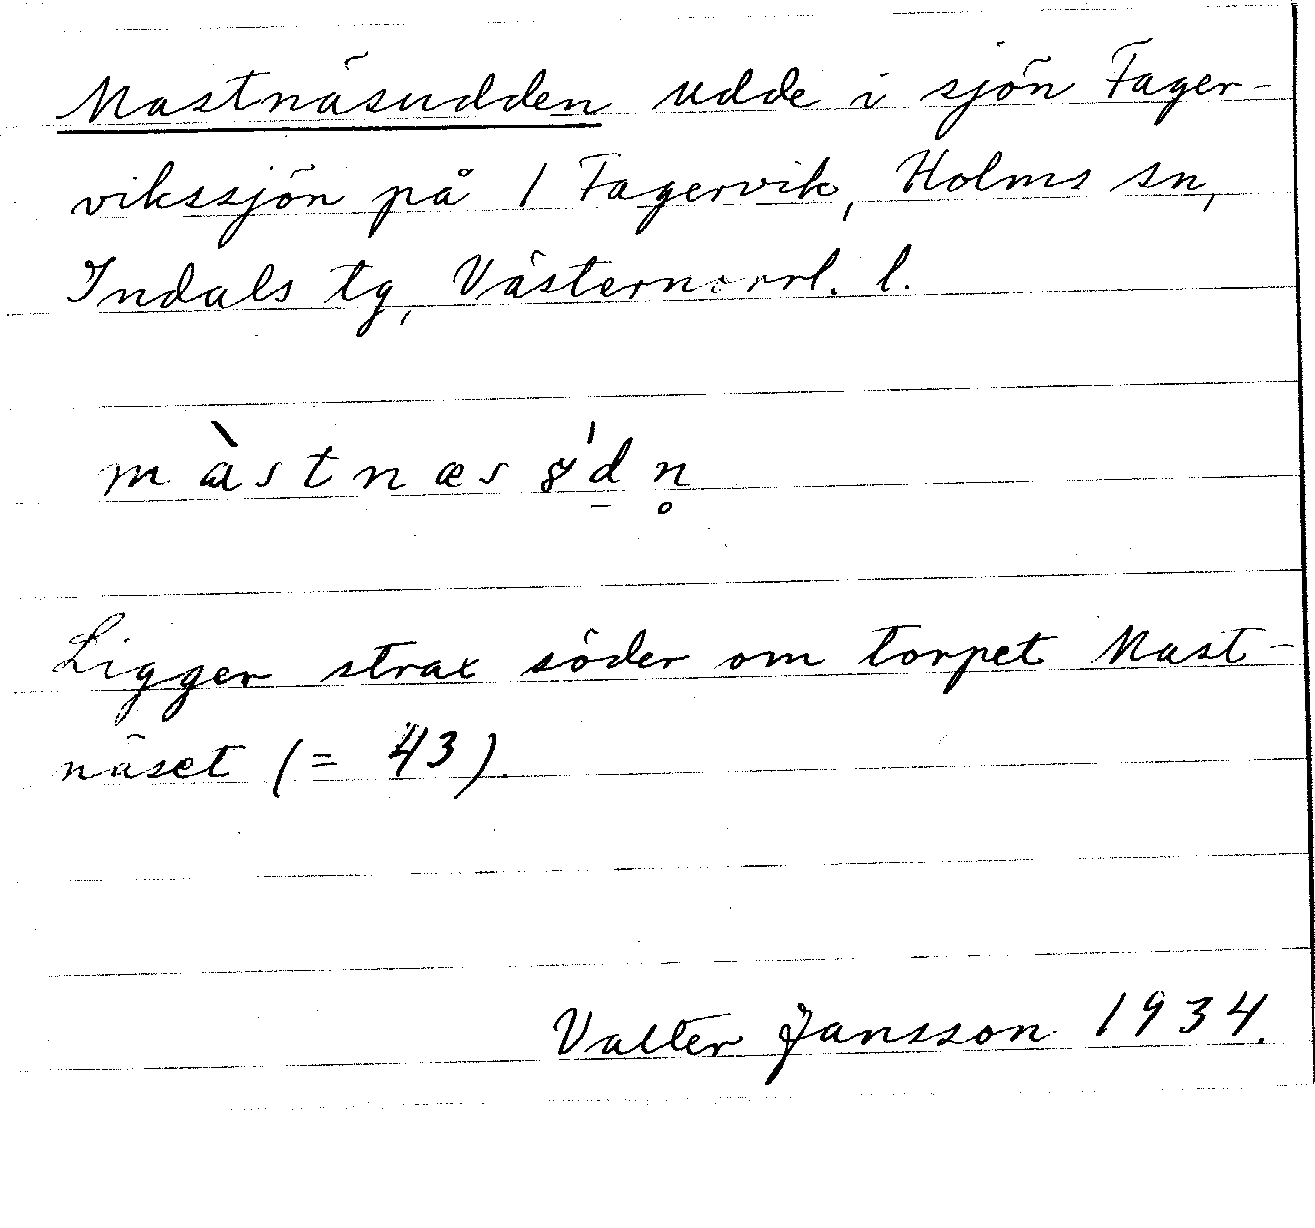 Mastnäsudden udde i sjön Fager-
vikssjön på 1 Fagervik, Holms sn,
Indals tg, Västernorrl. l.
Ligger strax söder om torpet Mast-
näset (= 43).
Valter Jansson 1934.